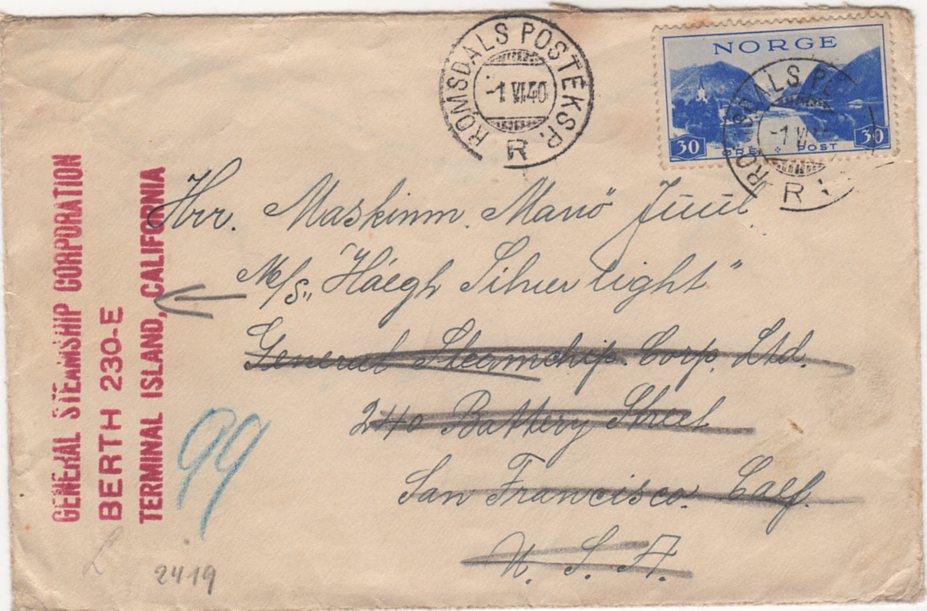 ROMSDALS POSTEKSP.
-1 VI 40
R
NORGE
30 ØRE POST 30
ROMSDALS PO
-1 VI
R
Hrr. Maskinm. Mariö Juul
M/S. "Häegh Silverlight"
General Steamchip. Corp. Ltd.
240 Battery Street
San Francisco. Calf.
U. S. A.
GENERAL STEAMSHIP CORPORATION
BERTH 230-E
TERMINAL ISLAND, CALIFORNIA
99
2419